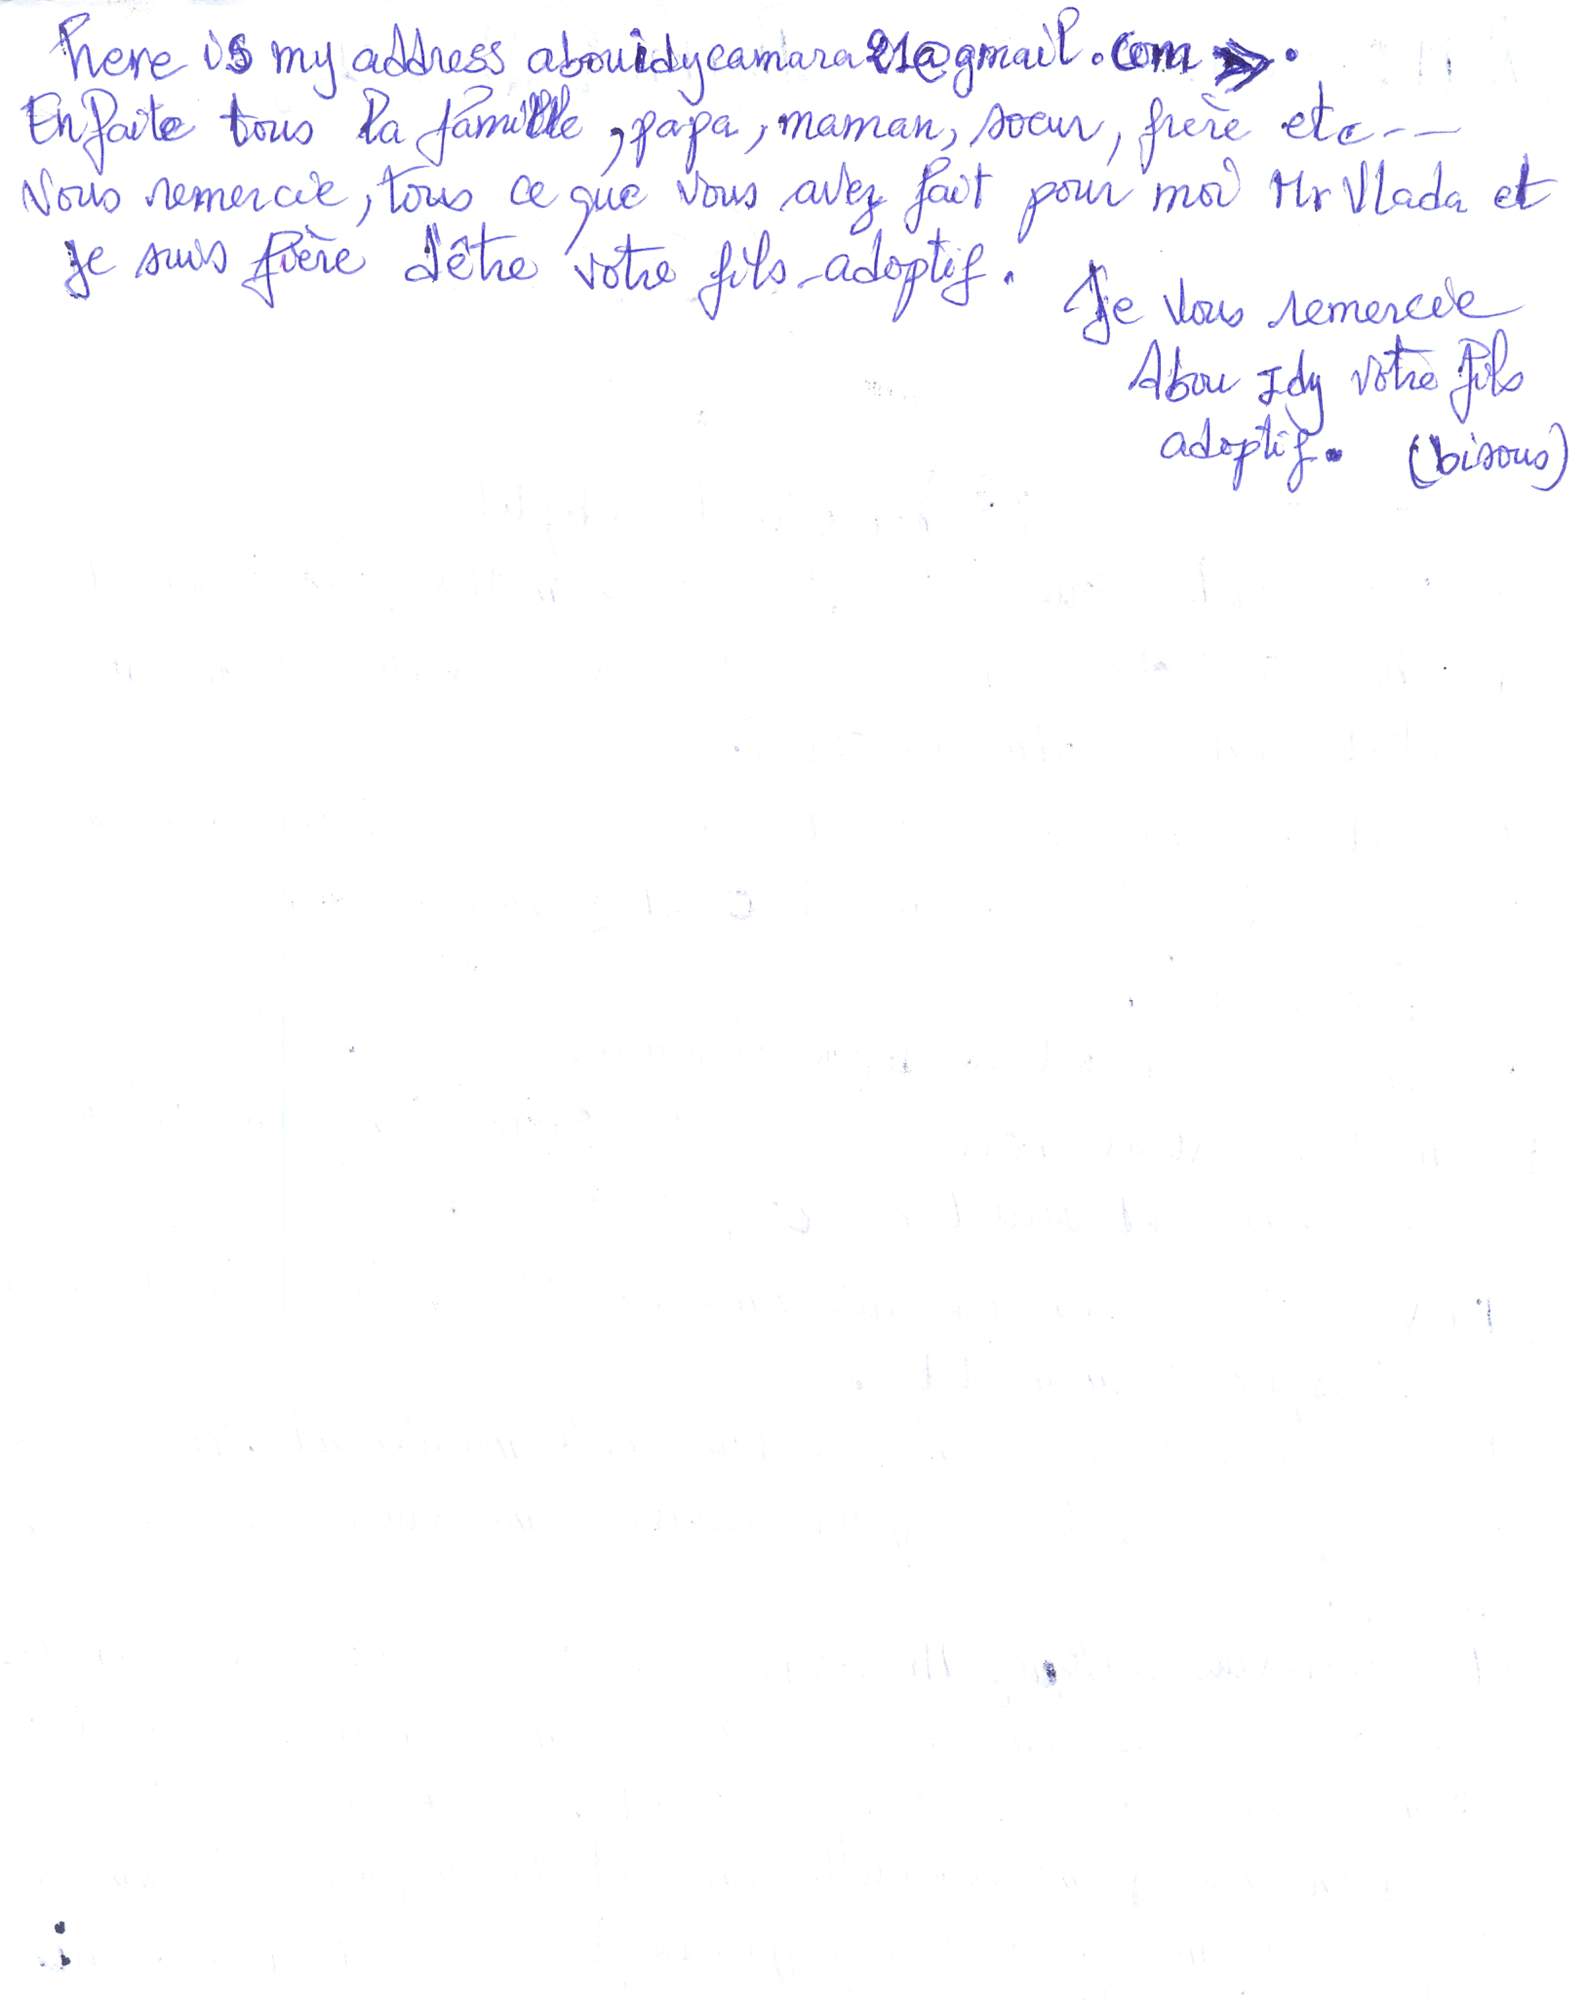 here is my address abouidycamara21@gmail.com .
En faite tous la famille, papa, maman, soeur, frère etc---
Vous remercie, tous ce que vous avez fait pour moi Mr Vlada et
Je suis fière d'être votre fils adoptif.
Je vous remercie
Abou Idy votre fils
adoptif. (bisous)